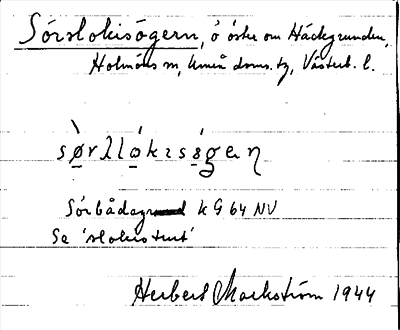 Sörslokisögern, ö öster om Häckgrunden,
Holmöns sn, Umeå doms. tg, Västerb. l.
sø̀rʎló̱kısǿ̱gəɳ
Sörbådagrund k G 64 NV
Se 'slokistrut'
Herbert Markström 1944